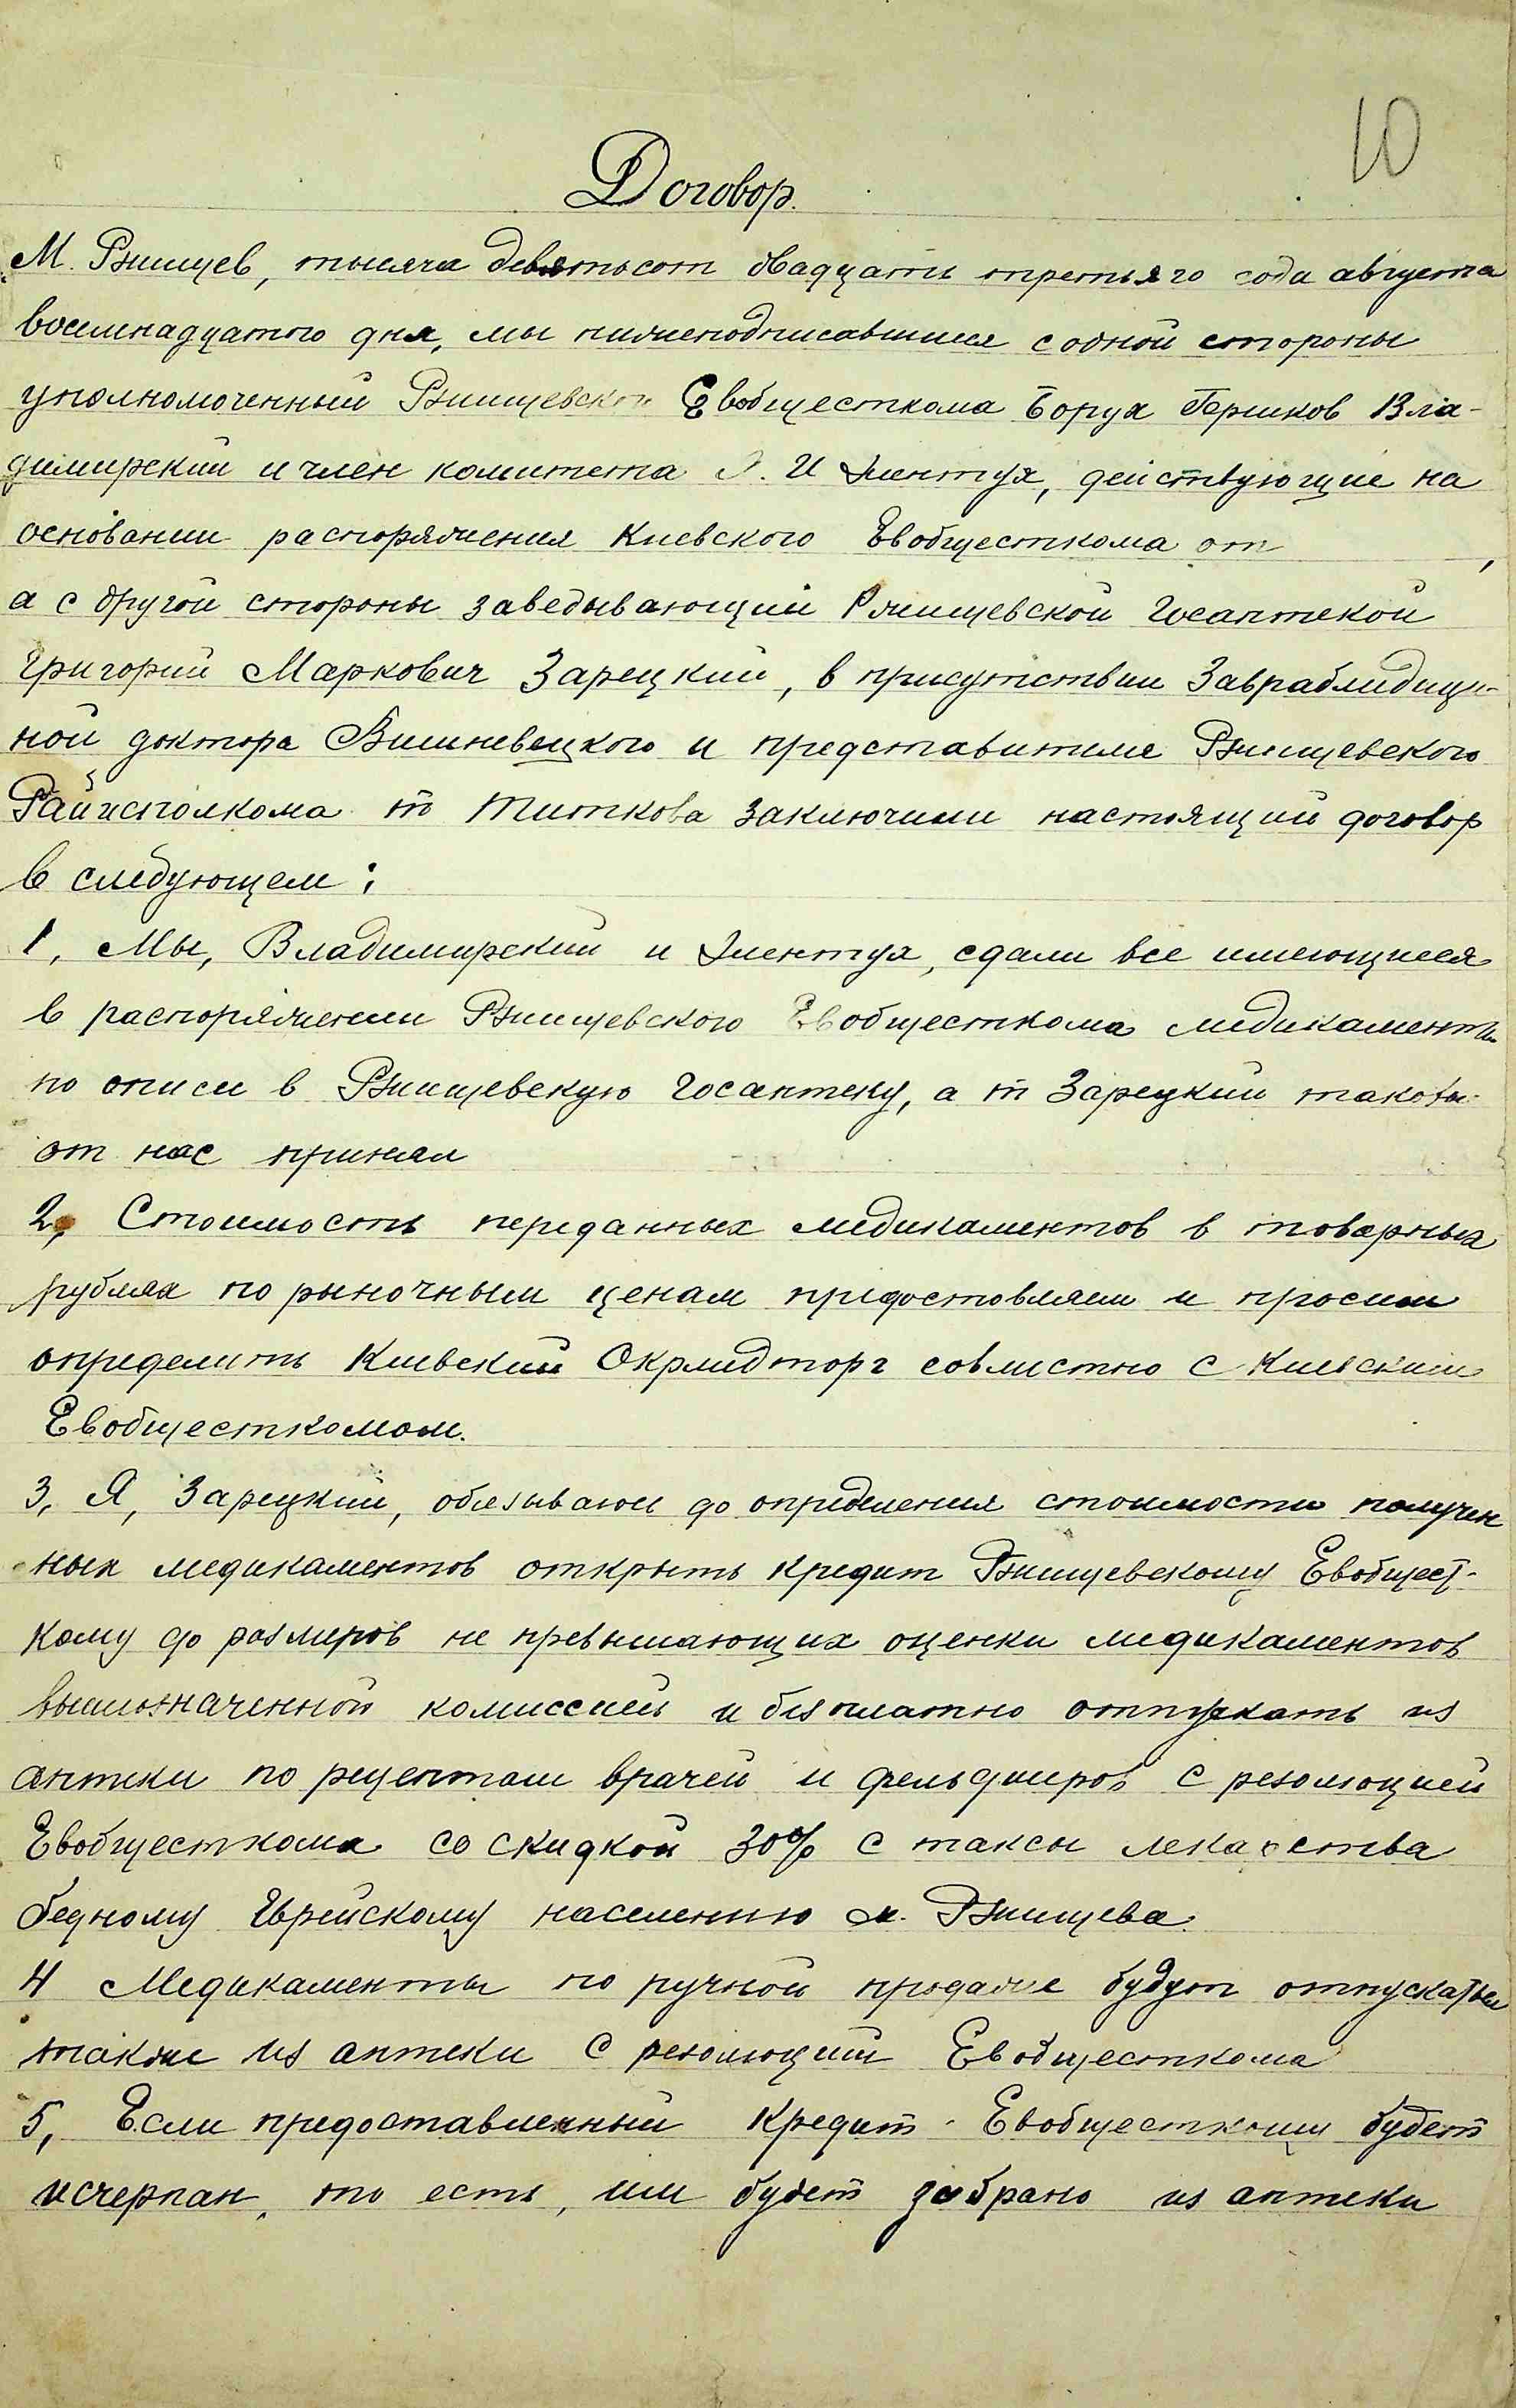 10
Договор.
М. Ржищев, тысяча девятьсот двадцать третьяго года августа
восемнадцатого дня, мы нижеподписавшиеся с одной стороны
уполномоченный Ржищевского Евобщесткома Борух Гершков Вла-
димирский и член комитета И, действующие на
основании распоряжения Киевского Евобщесткома от ,
а с другой стороны заведывающий Ржищевской Госаптекой
Григорий Маркович Зарецкий, в присутствии Завраймедици-
ной доктора Вишневецкого и представителя Ржищевского
Райисполкома т Титкова заключили настоящий договор
в следующем:
1, Мы, Владимирский и, сдали все имеющиеся
в распоряжении Ржищевского Евобщесткома медикаменты
по описи в Ржищевскую Госаптеку, а т Зарецкий таковы
от нас принял
2, Стоимость переданных медикаментов в товарных
рублях по рыночным ценам предостовляем и просим
определить Киевский Окрмедторг совместно с Киевским
Евобщесткомом.
3, Я, Зарецкий, обязываюсь до определения стоимости получен
ных медикаментов открыть кредит Ржищевскому Евобщест-
кому до размеров не превышающих оценки медикаментов
вышозначенной комиссией и безплатно отпускать из
аптеки по рецептам врачей и фельдшеров с резолюцией
Евобщесткома со скидкой 30% с таксы лекарства
бедному Еврейскому населению м. Ржищева.
4 Медикаменты по ручной продаже будут отпускаться
также из аптеки с резолюции Евобщесткома
5, Если предоставленный кредит Евобщесткому будет
исчерпан, то есть, им будет забрано из аптеки